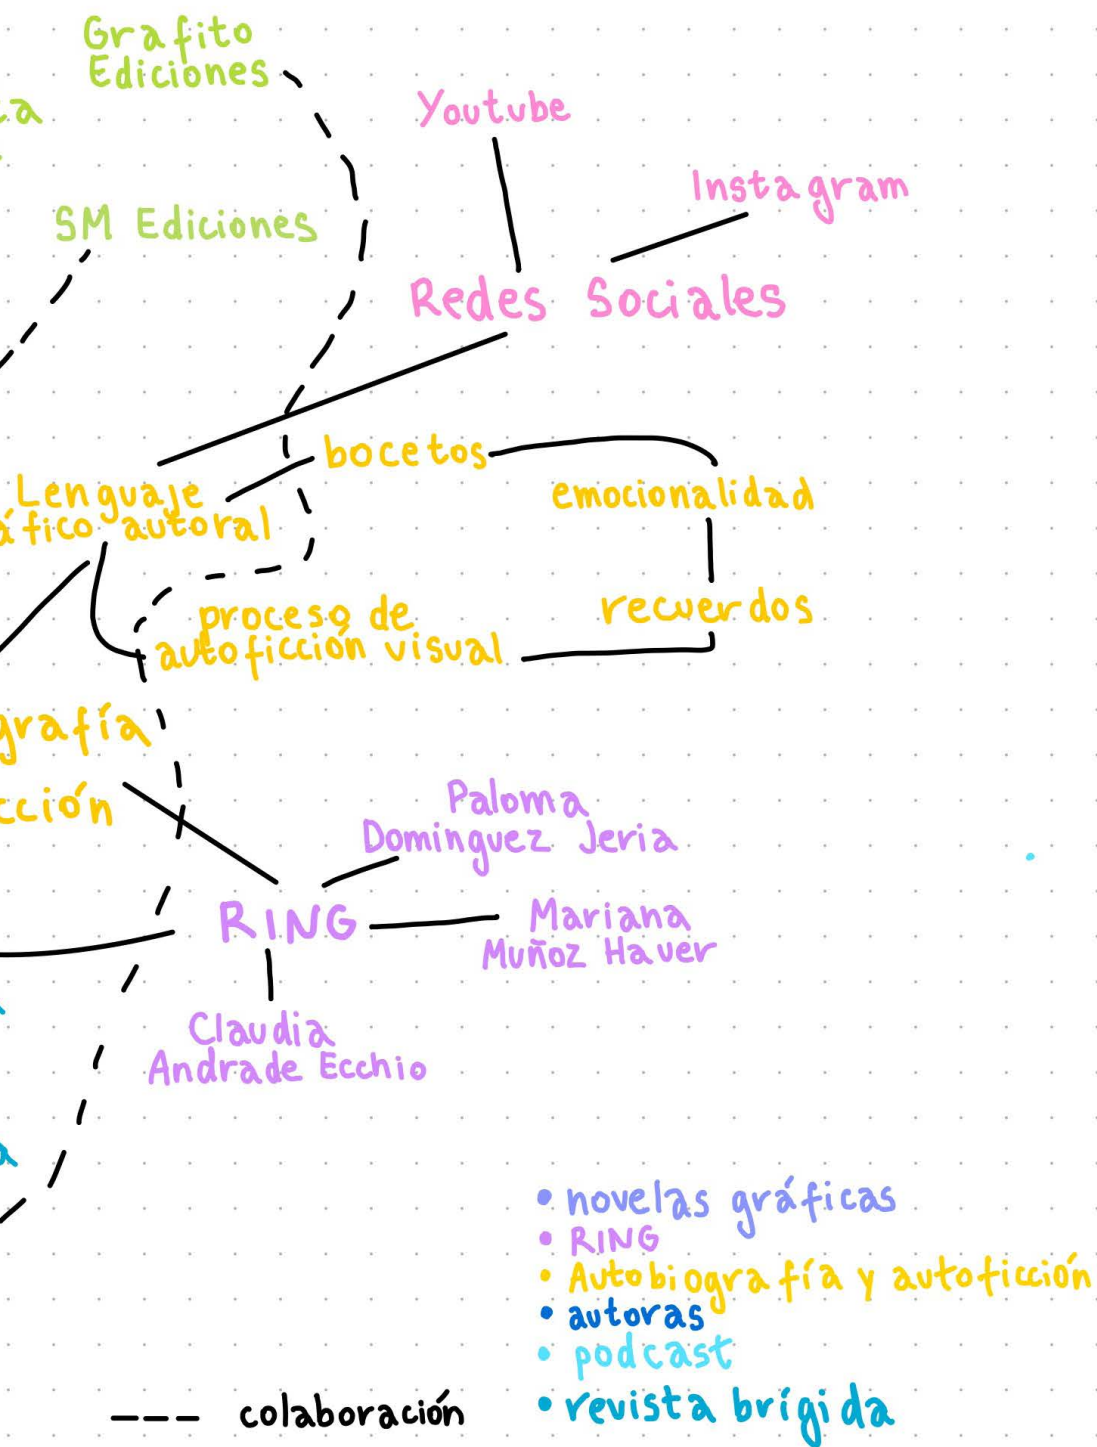 Grafito
Ediciones
Youtube
Instagram
SM Ediciones
Redes Sociales
bocetos
emocionalidad
Lenguaje
áfico autoral
recuerdos
proceso de
autoficción visual
grafía
cción
Paloma
Dominguez Jeria
RING
Mariana
Muñoz Haver
Claudia
Andrade Ecchio
• novelas gráficas
• RING
• Autobiografía y autoficción
• autoras
• podcast
• revista brígida
--- colaboración